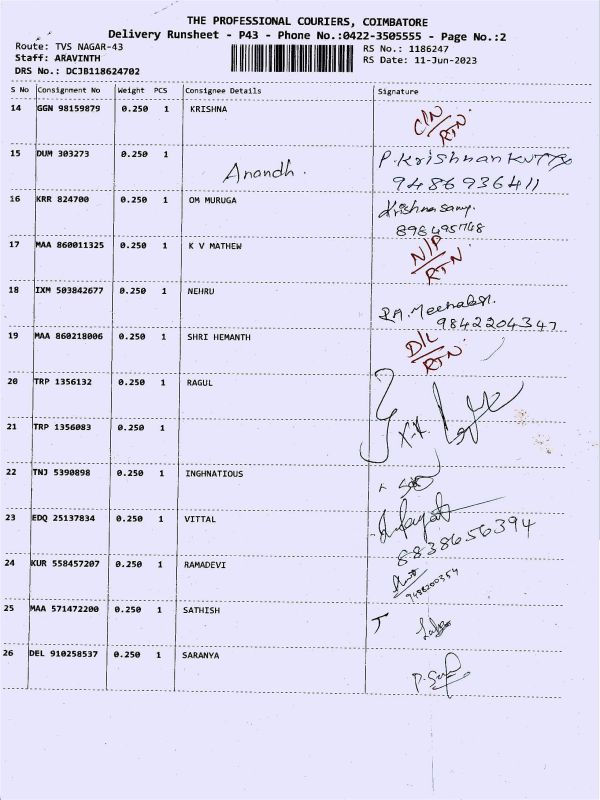 THE PROFESSIONAL COURIERS, COIMBATORE
Delivery Runsheet - P43 - Phone No.:0422-3505555 - Page No.:2
Route: TVS NAGAR-43 RS No.: 1186247
Staff: ARAVINTH RS Date: 11-Jun-2023
DRS No.: DCJB118624702
S No Consignment No Weight PCS Consignee Details Signature
14 GGN 98159879 0.250 1 KRISHNA
C/N
RTN
15 DUM 303273 0.250 1 Anandh. P. Krishnan Kutty
9486936411
16 KRR 824700 0.250 1 OM MURUGA Krishnasamy.
17 MAA 860011325 0.250 1 K V MATHEW
N/P
RTN
18 IXM 503842677 0.250 1 NEHRU
9842204347
19 MAA 860218006 0.250 1 SHRI HEMANTH
D/L
RTN
20 TRP 1356132 0.250 1 RAGUL
21 TRP 1356083 0.250 1
22 TNJ 5390898 0.250 1 INGHNATIOUS
23 EDQ 25137834 0.250 1 VITTAL
8838656394
24 KUR 558457207 0.250 1 RAMADEVI
9488200354
25 MAA 571472200 0.250 1 SATHISH
26 DEL 910258537 0.250 1 SARANYA